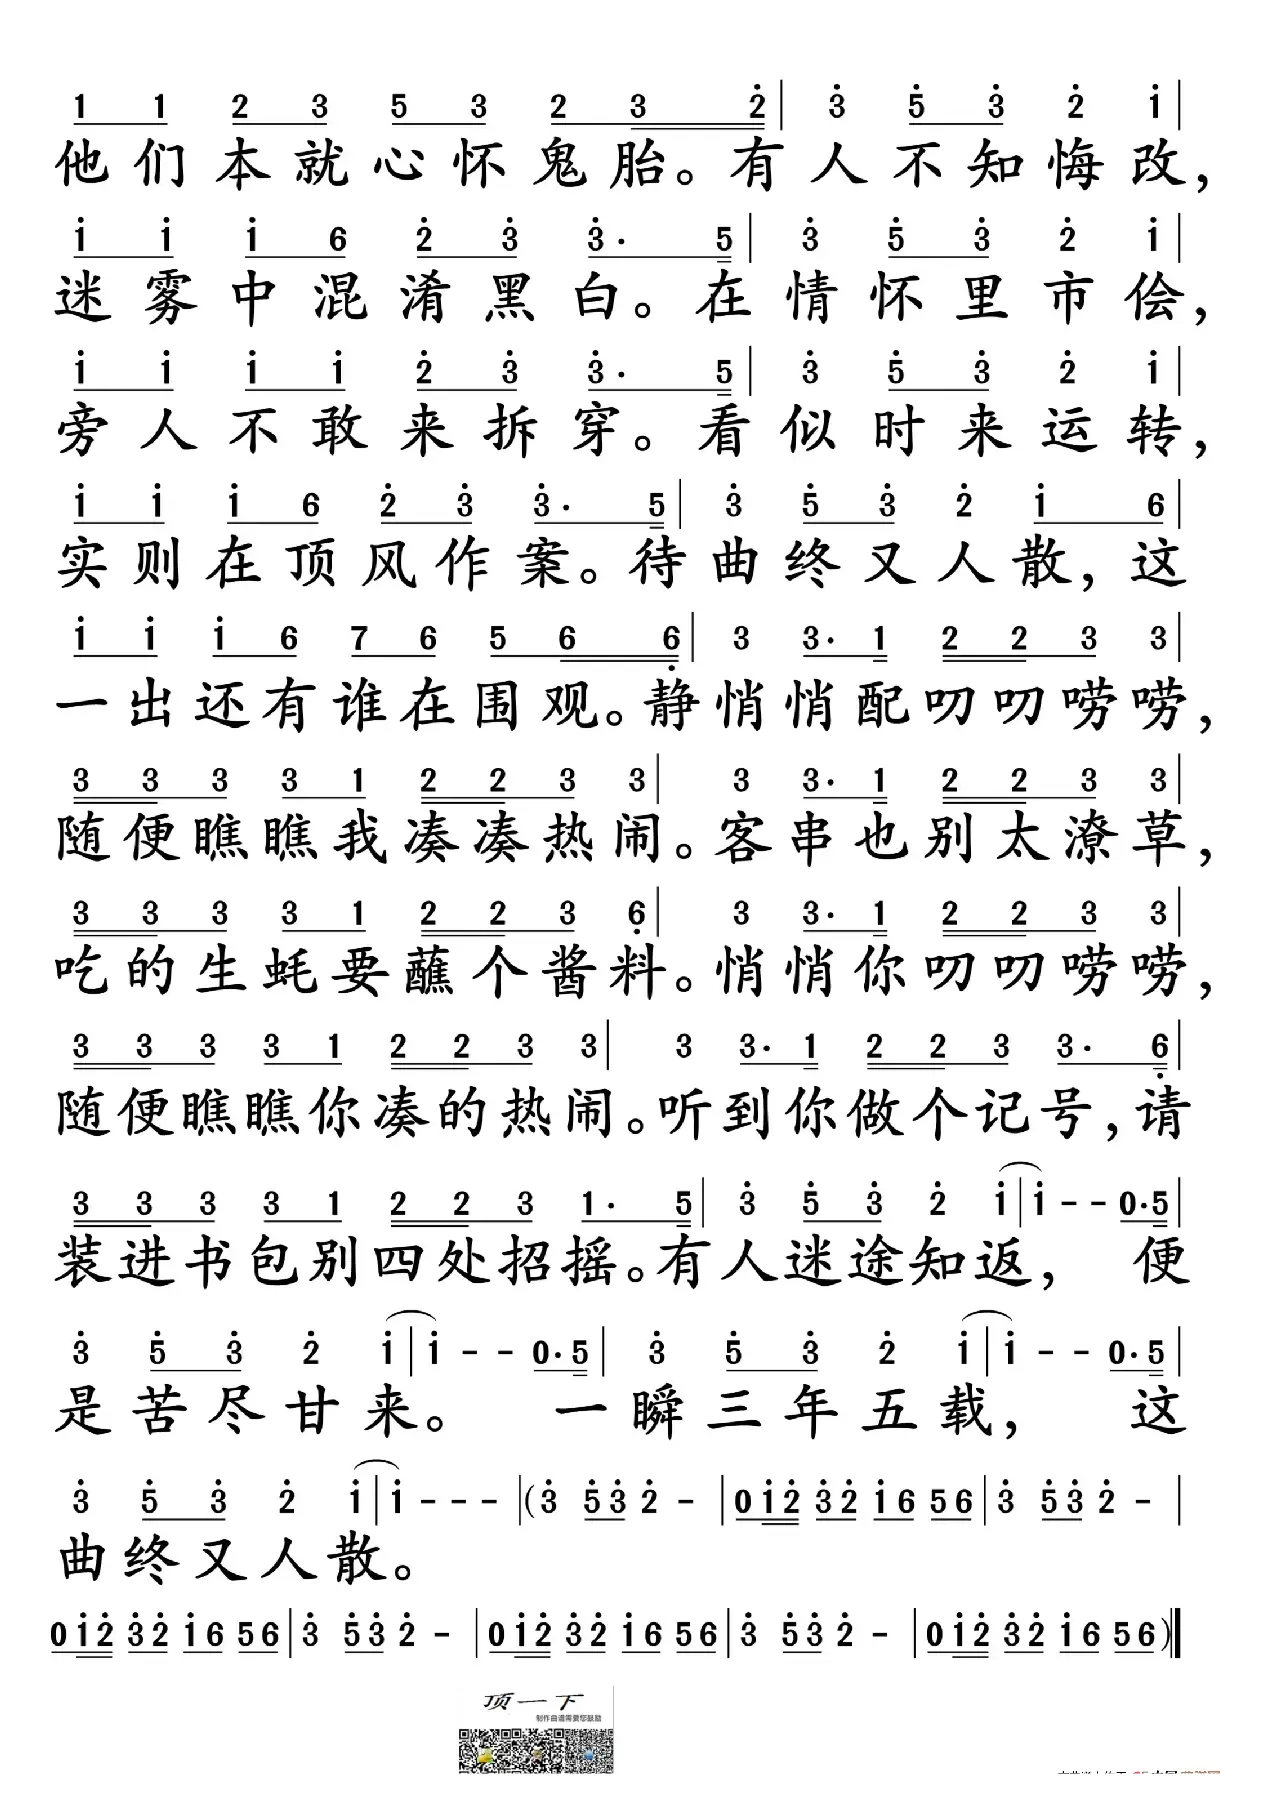 1 1 2 3 5 3 2 3 2̇ | 3̇ 5̇ 3̇ 2̇ 1̇ |
他们本就心怀鬼胎。有人不知悔改，
1̇ 1̇ 1̇ 6 2̇ 3̇ 3̇· 5̇ | 3̇ 5̇ 3̇ 2̇ 1̇ |
迷雾中混淆黑白。在情怀里市侩，
1̇ 1̇ 1̇ 1̇ 2̇ 3̇ 3̇· 5̇ | 3̇ 5̇ 3̇ 2̇ 1̇ |
旁人不敢来拆穿。看似时来运转，
1̇ 1̇ 1̇ 6 2̇ 3̇ 3̇· 5̇ | 3̇ 5̇ 3̇ 2̇ 1̇ 6 |
实则在顶风作案。待曲终又人散，这
1̇ 1̇ 1̇ 6 7 6 5 6 6̣ | 3 3· 1 2 2 3 3 |
一出还有谁在围观。静悄悄配叨叨唠唠，
3 3 3 3 1 2 2 3 3 | 3 3· 1 2 2 3 3 |
随便瞧瞧我凑凑热闹。客串也别太潦草，
3 3 3 3 1 2 2 3 6̣ | 3 3· 1 2 2 3 3 |
吃的生蚝要蘸个酱料。悄悄你叨叨唠唠，
3 3 3 3 1 2 2 3 3 | 3 3· 1 2 2 3 3· 6̣ |
随便瞧瞧你凑的热闹。听到你做个记号，请
3 3 3 3 1 2 2 3 1· 5̇ | 3̇ 5̇ 3̇ 2̇ 1̇ | 1̇ - - 0·5̇ |
装进书包别四处招摇。有人迷途知返， 便
3̇ 5̇ 3̇ 2̇ 1̇ | 1̇ - - 0·5̇ | 3̇ 5̇ 3̇ 2̇ 1̇ | 1̇ - - 0·5̇ |
是苦尽甘来。 一瞬三年五载， 这
3̇ 5̇ 3̇ 2̇ 1̇ | 1̇ - - - | (3̇ 5̇3̇ 2̇ - | 01̇2̇ 3̇2̇ 1̇6 56 | 3̇ 5̇3̇ 2̇ - |
曲终又人散。
01̇2̇ 3̇2̇ 1̇6 56 | 3̇ 5̇3̇ 2̇ - | 01̇2̇ 3̇2̇ 1̇6 56 | 3̇ 5̇3̇ 2̇ - | 01̇2̇ 3̇2̇ 1̇6 56)‖
顶一下
制作曲谱需要您鼓励